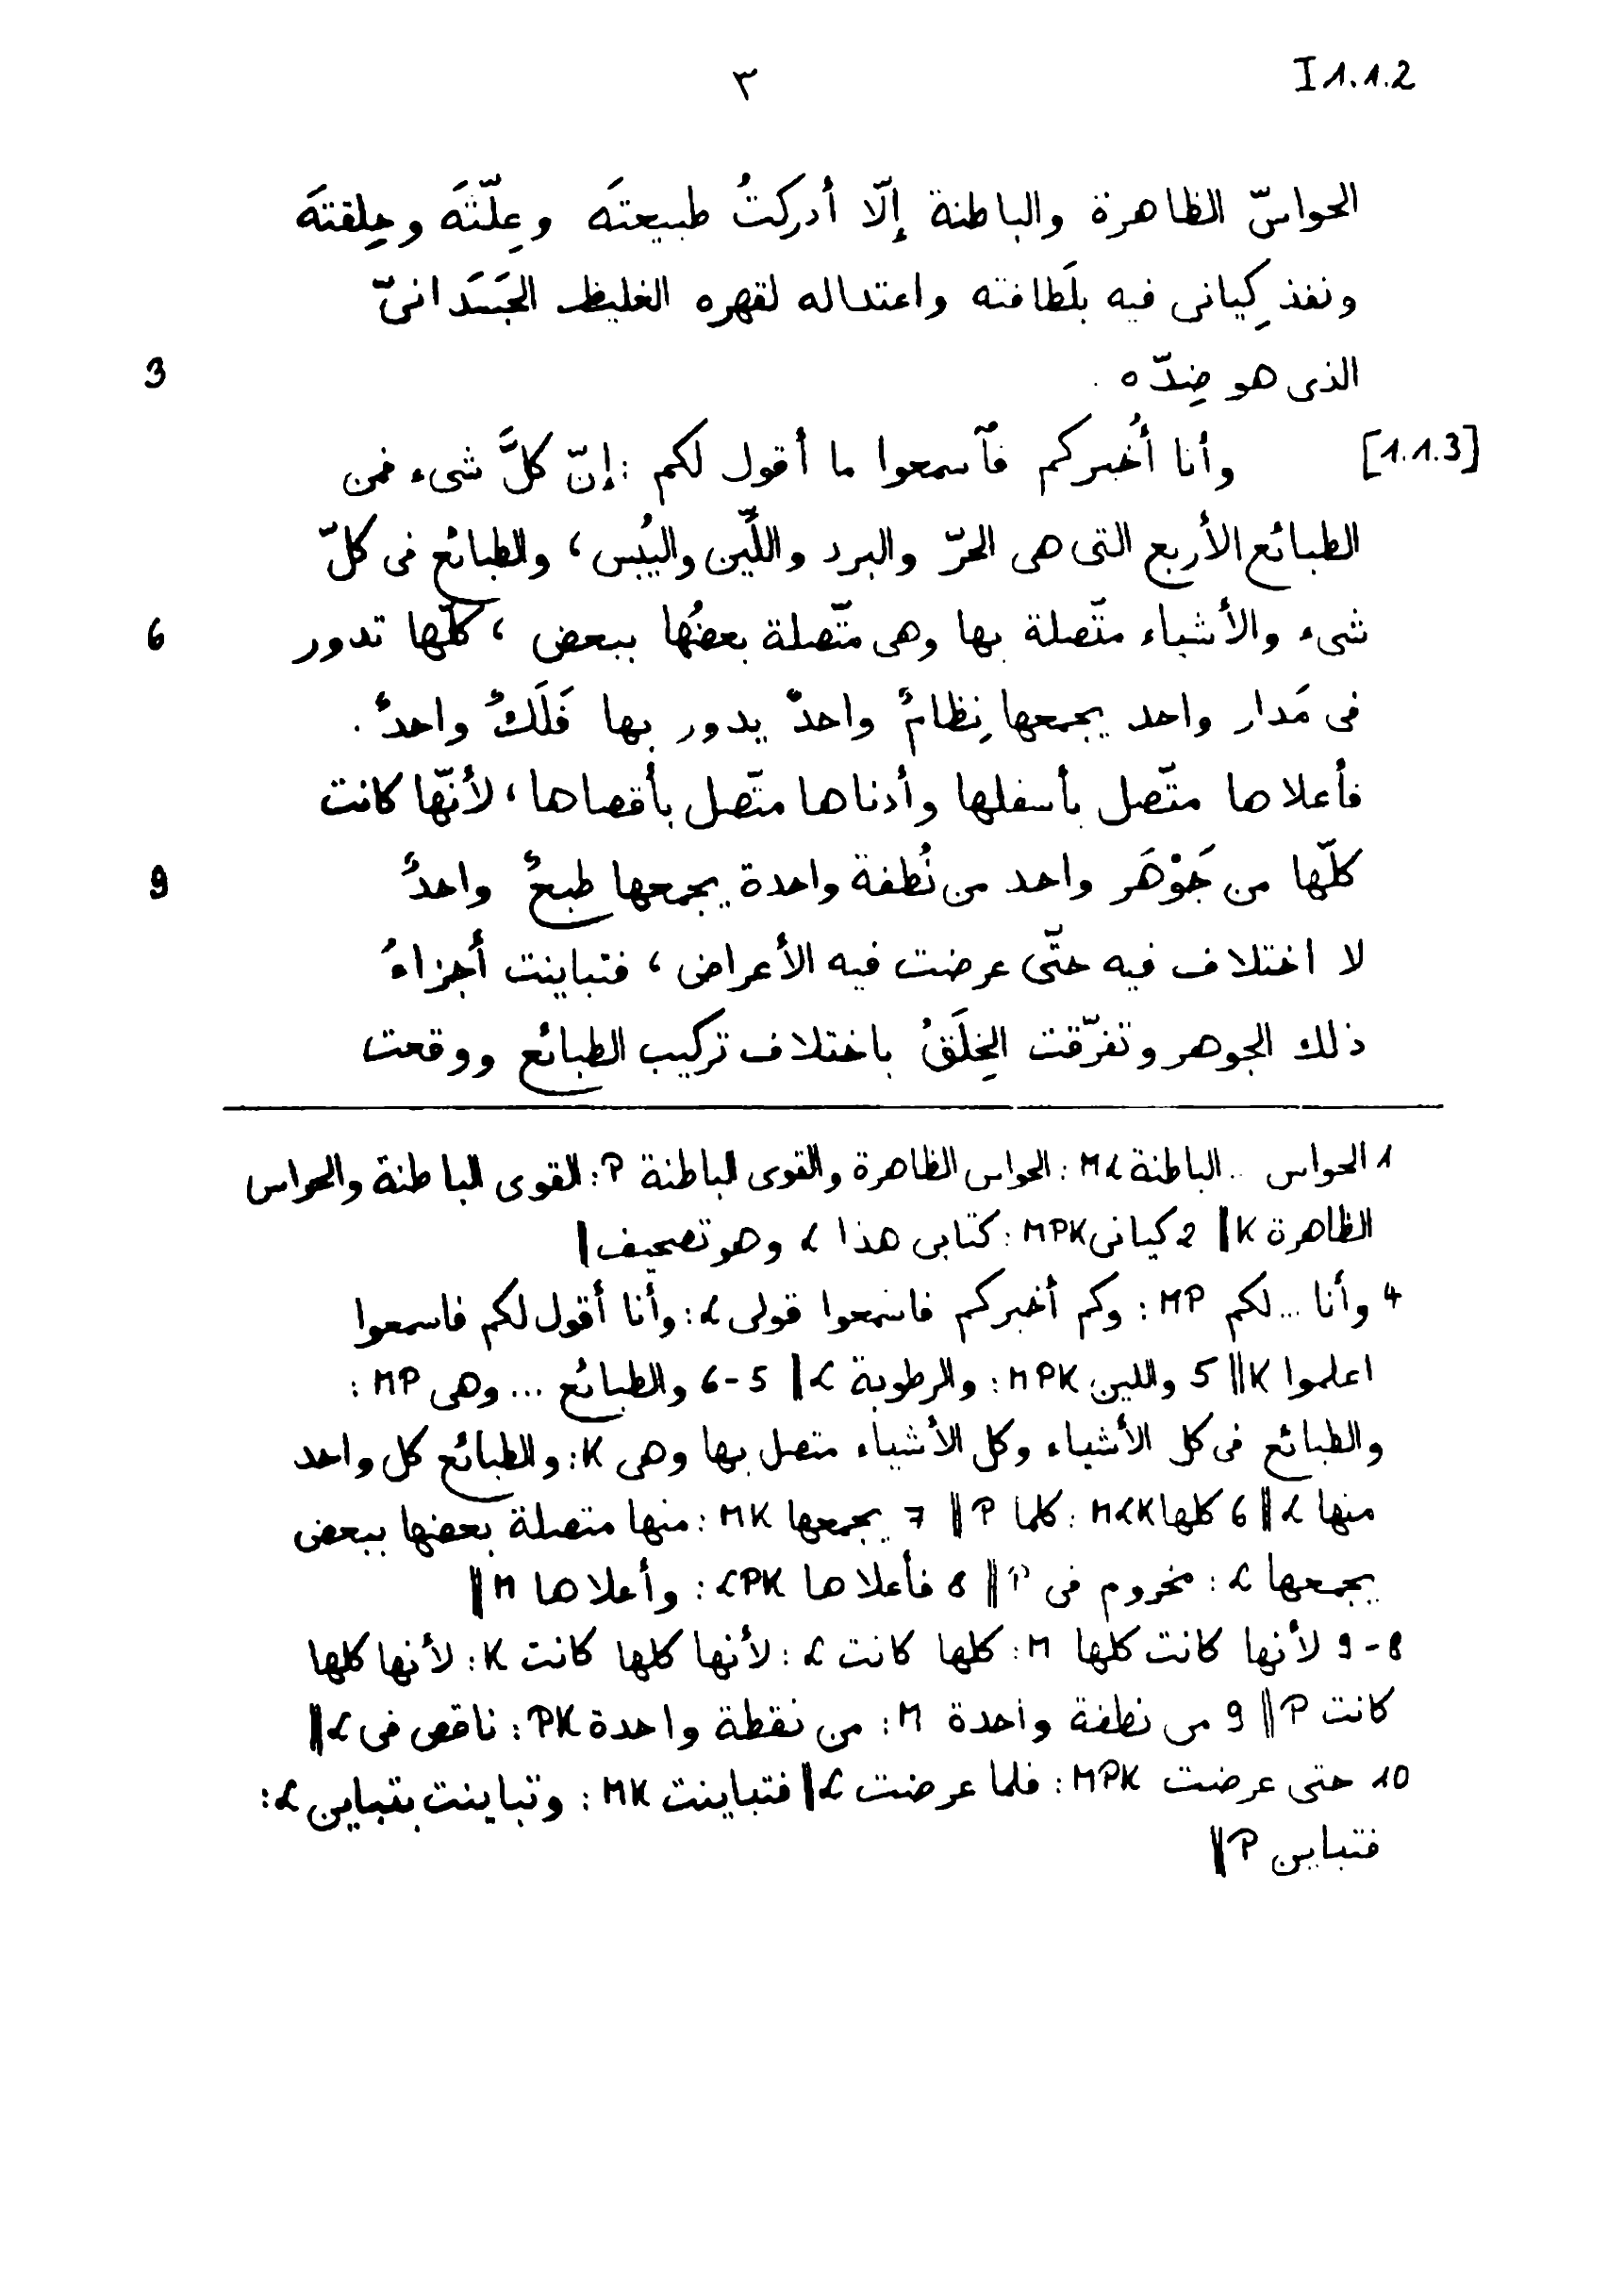 ٣ I 1.1.2
الحواسّ الظاهرة والباطنة إلّا أدركتُ طبيعتَه وعِلّتَه وخِلقتَه
ونفذ كِيانى فيه بلَطافته واعتداله لقهره الغليظ الجَسَدانىّ
3 الذى هو ضِدّه .
[1.1.3] وأنا أُخبركم فآسمعوا ما أقول لكم : إنّ كلَّ شىء فمن
الطبائع الأربع التى هى الحرّ والبرد واللِّين واليُبس ، والطبائع فى كلّ
6 شىء والأشياء متّصلة بها وهى متّصلة بعضُها ببعض ، كلّها تدور
فى مَدار واحد يجمعها نِظامٌ واحدٌ يدور بها فَلَكٌ واحدٌ .
فأعلاها متّصل بأسفلها وأدناها متّصل بأقصاها ، لأنّها كانت
9 كلّها من جَوْهَر واحد من نُطفة واحدة يجمعها طبعٌ واحدٌ
لا اختلاف فيه حتّى عرضت فيه الأعراض ، فتباينت أجزاءُ
ذلك الجوهر وتفرّقت الخِلَقُ باختلاف تركيب الطبائع ووقعت
1 الحواس ... الباطنة ML : الحواس الظاهرة والقوى الباطنة P : القوى الباطنة والحواس
الظاهرة K ‖ 2 كيانى MPK : كتابى هذا L وهو تصحيف |
4 وأنا ... لكم MP : وكم أخبركم فاسمعوا قولى L : وأنا أقول لكم فاسمعوا
اعلموا K ‖ 5 واللين MPK : والرطوبة L ‖ 5-6 والطبائع ... وهى MP :
والطبائع فى كل الأشياء وكل الأشياء متصل بها وهى K : والطبائع كل واحد
منها L ‖ 6 كلها MLK : كلما P ‖ 7 يجمعها MK : منها متصلة بعضها ببعض
يجمعها L : مخروم فى P ‖ 8 فأعلاها LPK : وأعلاها M ‖
8-9 لأنها كانت كلها M : كلها كانت L : لأنها كلها كانت K : لأنها كلها
كانت P ‖ 9 من نطفة واحدة M : من نقطة واحدة PK : ناقص فى L ‖
10 حتى عرضت MPK : فلما عرضت L ‖ فتباينت MK : وتباينت بتباين L :
فتباين P ‖